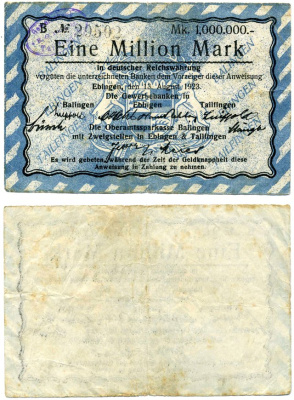 B № 29502 Mk. 1,000,000.-
Eine Million Mark
in deutscher Reichswährung
vergüten die unterzeichneten Banken dem Vorzeiger dieser Anweisung
Ebingen, den 13. August 1923.
Die Gewerbebanken in
Balingen Ebingen Tailfingen
Die Oberamtssparkasse Balingen
mit Zweigstellen in Ebingen & Tailfingen
Es wird gebeten, während der Zeit der Geldknappheit diese
Anweisung in Zahlung zu nehmen.